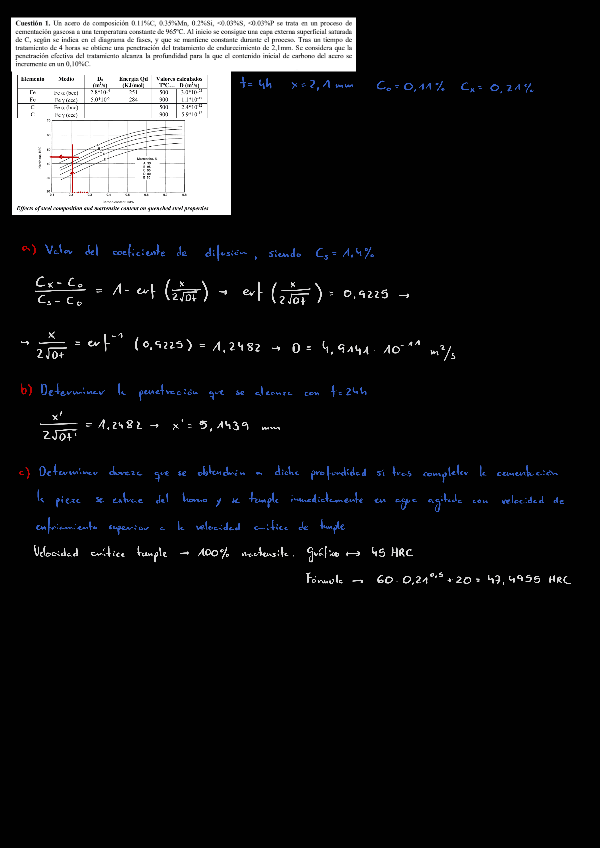 Cuestión 1. Un acero de composición 0.11%C, 0.35%Mn, 0.2%Si, <0.03%S, <0.03%P se trata en un proceso de
cementación gaseosa a una temperatura constante de 965ºC. Al inicio se consigue una capa externa superficial saturada
de C, según se indica en el diagrama de fases, y que se mantiene constante durante el proceso. Tras un tiempo de
tratamiento de 4 horas se obtiene una penetración del tratamiento de endurecimiento de 2,1mm. Se considera que la
penetración efectiva del tratamiento alcanza la profundidad para la que el contenido inicial de carbono del acero se
incremente en un 0,10%C.
t = 4h x = 2,1 mm C₀ = 0,11% Cₓ = 0,21%
Elemento Medio D₀ (m²/s) Energía Qd (KJ/mol) Valores calculados TºC D (m²/s)
Fe Fe α (bcc) 251 500
Fe Fe γ (fcc) 284 900
C Fe α (bcc) 500
C Fe γ (fcc) 900
Effects of steel composition and martensite content on quenched steel properties
a) Valor del coeficiente de difusión, siendo Cₛ = 1,4%
(Cₓ - C₀)/(Cₛ - C₀) = 1 - erf (x/(2√Dt)) → erf (x/(2√Dt)) = 0,9225 →
→ x/(2√Dt) = erf⁻¹ (0,9225) = 1,2482 → D = 4,9141 · 10⁻¹¹ m²/s
b) Determinar la penetración que se alcanza con t = 24h
x'/(2√Dt') = 1,2482 → x' = 5,1439 mm
c) Determinar dureza que se obtendrán a dicha profundidad si tras completar la cementación
la pieza se extrae del horno y se temple inmediatamente en agua agitada con velocidad de
enfriamiento superior a la velocidad crítica de temple
Velocidad crítica temple → 100% martensita. Gráfico ↦ 45 HRC
Fórmula → 60 · 0,21⁰·⁵ + 20 = 47,4955 HRC